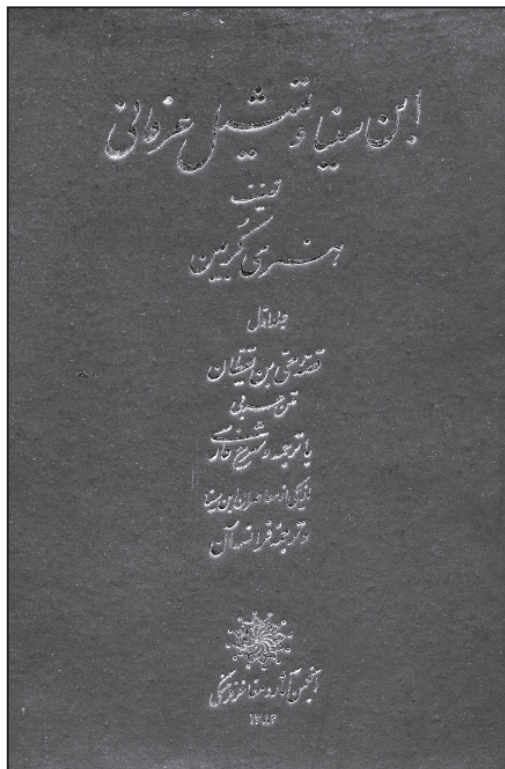 ابن سینا و تمثیل عرفانی
تصنیف
هنری کُربین
جلد اول
قصّهٔ حیّ بن یقظان
متن عربی
با ترجمه و شرح فارسی
از یکی از معاصران ابن سینا
و ترجمهٔ فرانسه آن
انجمن آثار و مفاخر فرهنگی